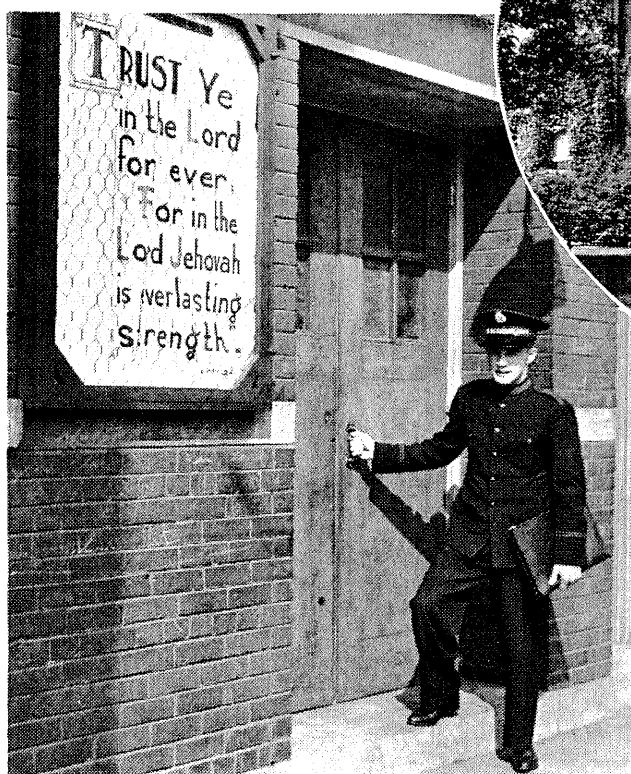 TRUST Ye
in the Lord
for ever,
For in the
Lord Jehovah
is everlasting
strength".